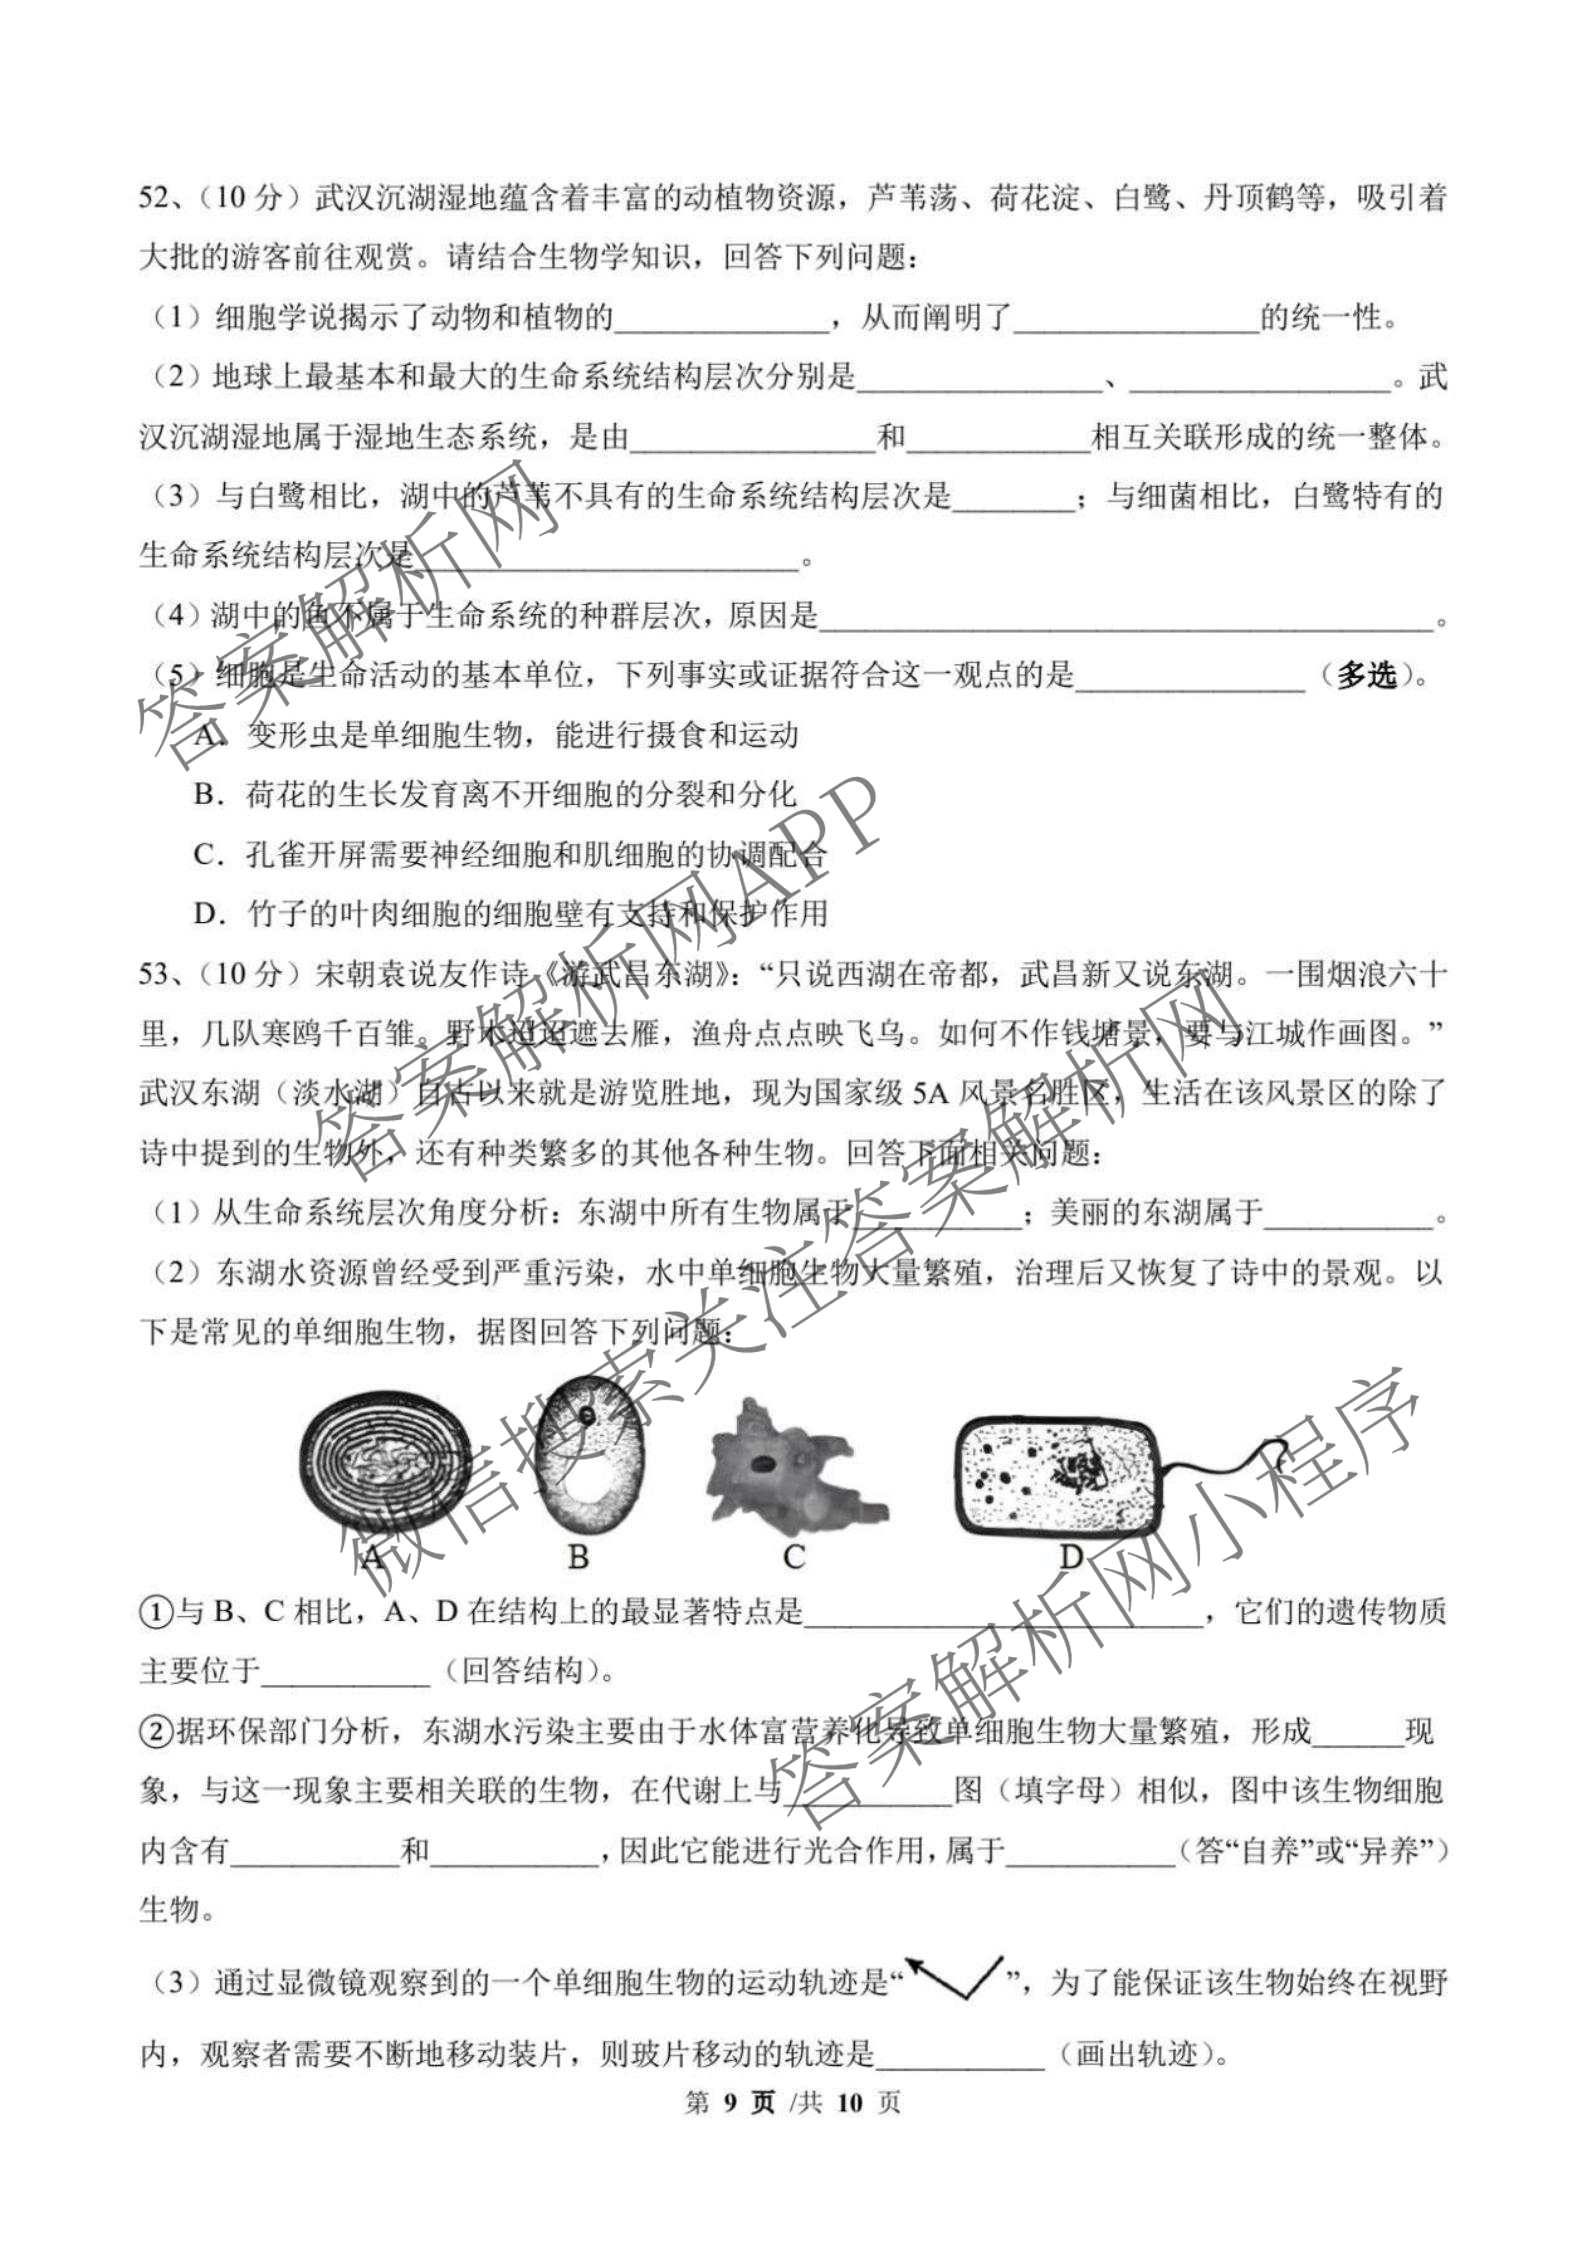 52、（10 分）武汉沉湖湿地蕴含着丰富的动植物资源，芦苇荡、荷花淀、白鹭、丹顶鹤等，吸引着
大批的游客前往观赏。请结合生物学知识，回答下列问题：
（1）细胞学说揭示了动物和植物的______________，从而阐明了________________的统一性。
（2）地球上最基本和最大的生命系统结构层次分别是________________、_________________。武
汉沉湖湿地属于湿地生态系统，是由________________和____________相互关联形成的统一整体。
（3）与白鹭相比，湖中的芦苇不具有的生命系统结构层次是________；与细菌相比，白鹭特有的
生命系统结构层次是_________________________。
（4）湖中的鱼不属于生命系统的种群层次，原因是________________________________________。
（5）细胞是生命活动的基本单位，下列事实或证据符合这一观点的是_______________（多选）。
A．变形虫是单细胞生物，能进行摄食和运动
B．荷花的生长发育离不开细胞的分裂和分化
C．孔雀开屏需要神经细胞和肌细胞的协调配合
D．竹子的叶肉细胞的细胞壁有支持和保护作用
53、（10 分）宋朝袁说友作诗《游武昌东湖》：“只说西湖在帝都，武昌新又说东湖。一围烟浪六十
里，几队寒鸥千百雏。野木迢迢遮去雁，渔舟点点映飞乌。如何不作钱塘景，要与江城作画图。”
武汉东湖（淡水湖）自古以来就是游览胜地，现为国家级 5A 风景名胜区，生活在该风景区的除了
诗中提到的生物外，还有种类繁多的其他各种生物。回答下面相关问题：
（1）从生命系统层次角度分析：东湖中所有生物属于___________；美丽的东湖属于___________。
（2）东湖水资源曾经受到严重污染，水中单细胞生物大量繁殖，治理后又恢复了诗中的景观。以
下是常见的单细胞生物，据图回答下列问题：
A B C D
①与 B、C 相比，A、D 在结构上的最显著特点是__________________________，它们的遗传物质
主要位于___________（回答结构）。
②据环保部门分析，东湖水污染主要由于水体富营养化导致单细胞生物大量繁殖，形成______现
象，与这一现象主要相关联的生物，在代谢上与___________图（填字母）相似，图中该生物细胞
内含有___________和___________，因此它能进行光合作用，属于___________（答“自养”或“异养”）
生物。
（3）通过显微镜观察到的一个单细胞生物的运动轨迹是“ ”，为了能保证该生物始终在视野
内，观察者需要不断地移动装片，则玻片移动的轨迹是___________（画出轨迹）。
第 9 页 /共 10 页
答案解析网
答案解析网APP
微信搜索关注答案解析网
答案解析网小程序